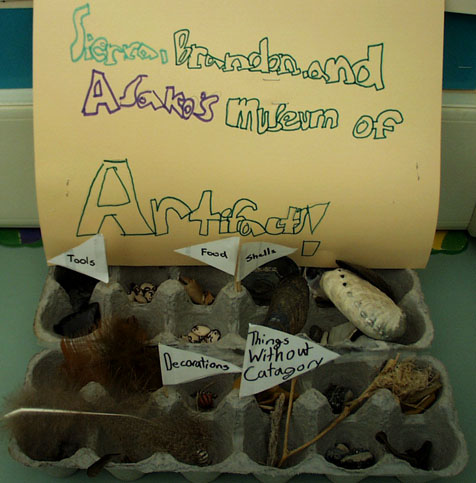 Sierra, Brandan, and
Asaka's Museum of
Artifact!
Tools
Food
Shells
Decorations
Things
Without
Catagory